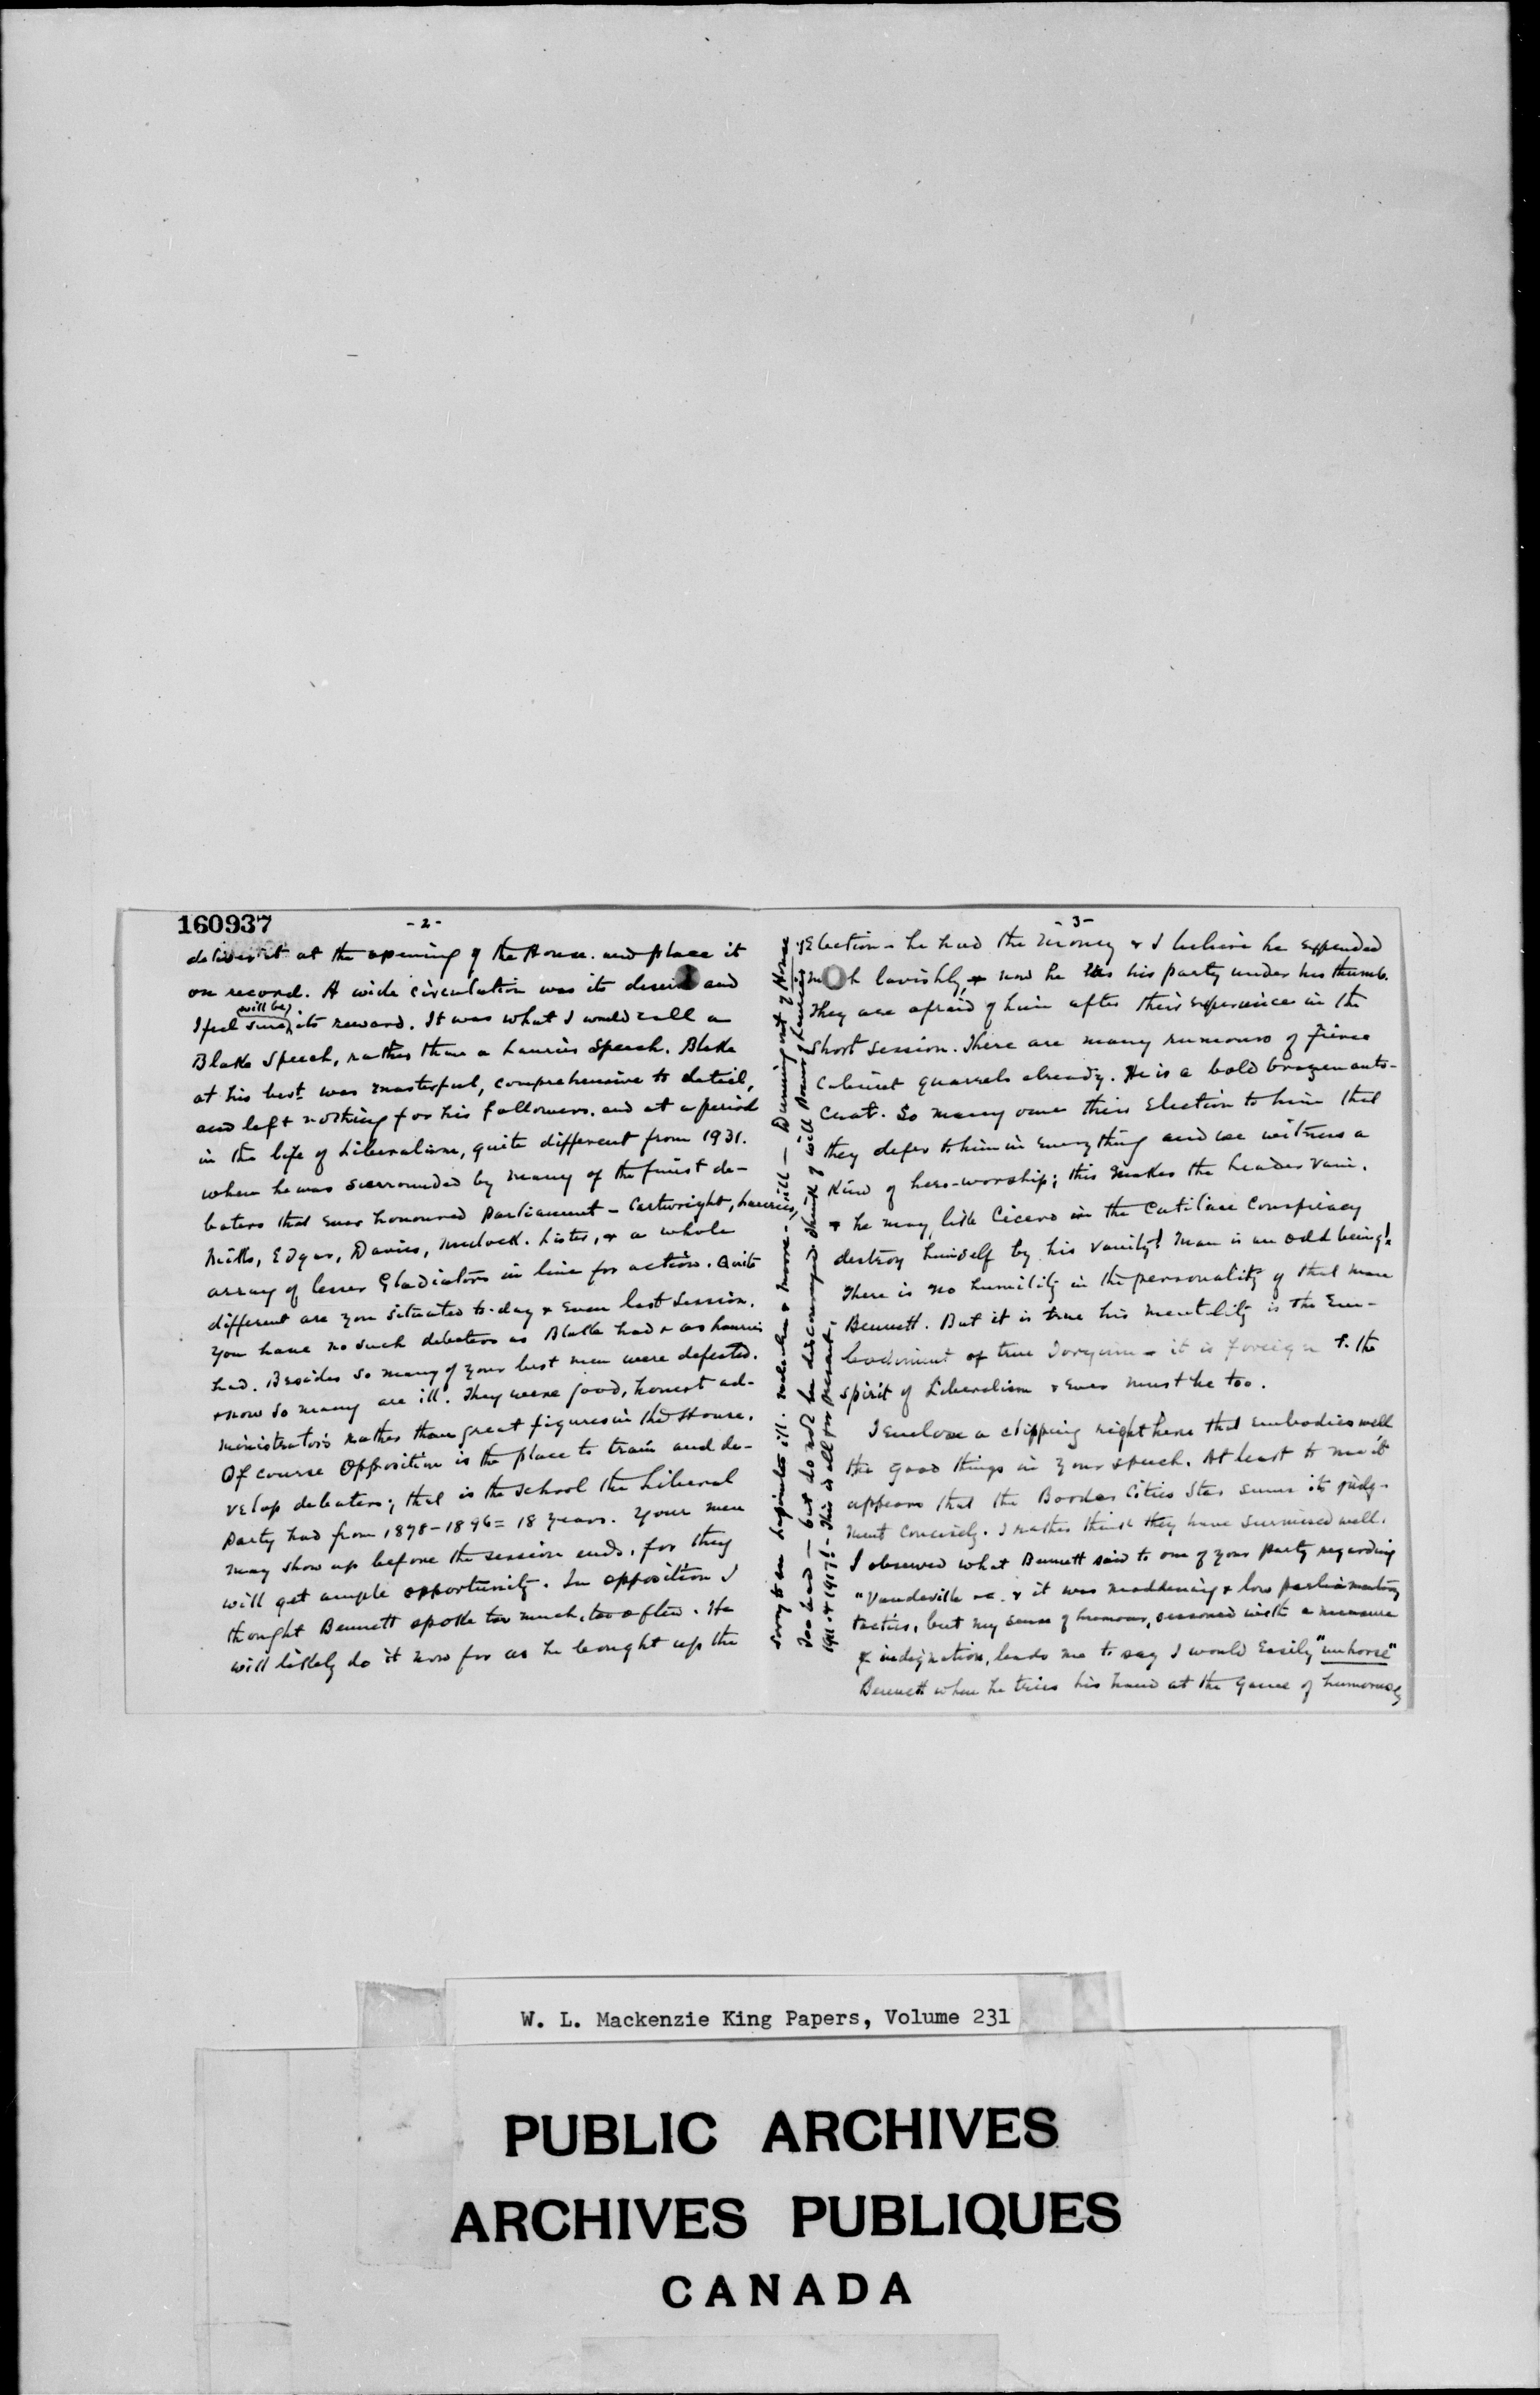 160937
-2-
deliver it at the opening of the House. and place it
on record. A wide circulation was its desire and
will be
I feel sure its reward. It was what I would call a
Blake Speech, rather than a Laurier Speech. Blake
at his best was masterful, comprehensive to detail,
and left nothing for his followers. and at a period
in the life of Liberalism, quite different from 1931.
when he was surrounded by many of the finest de-
baters that ever honoured Parliament - Cartwright, Laurier,
Mills, Edgar, Davies, Mulock. Lister, & a whole
array of lesser Gladiators in line for action. Quite
different are you situated to-day & even last session.
You have no such debaters as Blake had & as Laurier
had. Besides so many of your best men were defeated.
& now so many are ill. They were good, honest ad-
ministrators rather than great figures in the House.
Of course Opposition is the place to train and de-
velop debaters; that is the school the Liberal
Party had from 1878-1896 = 18 years. Your men
may show up before the session ends. for they
will get ample opportunity. In opposition I
thought Bennett spoke too much, too often. He
will likely do it now for as he bought up the
Sorry to see Lapointe ill. & Moore - ill — Dunning out of House
Too bad — but do not be discouraged. Think of Will of Laurier in
1911 & 1917! - This is all for present.
-3-
Election - he had the money & I believe he expended
lavishly, & now he has his party under his thumb.
They are afraid of him after their experience in the
short session. There are many rumours of fierce
Cabinet quarrels already. He is a bold brazen auto-
crat. So many owe their Election to him that
they defer to him in everything and we witness a
kind of hero-worship; this makes the leader vain.
& he may, like Cicero in the Catiline Conspiracy
destroy himself by his vanity! Man is an odd being!
There is no humility in the personality of that man
Bennett. But it is true his mentality is the Em-
bodiment of true Toryism - it is foreign to the
spirit of Liberalism & ever must be too.
I enclose a clipping right here that embodies well
the good things in your speech. At least to me it
appears that the Border Cities Star sums its judg-
ment concisely. I rather think they have surmised well.
I observed what Bennett said to one of your party regarding
"Vaudeville &c. & it was maddening & low parliamentary
tactics, but my sense of humour, seasoned with a measure
of indignation, leads me to say I would easily "unhorse"
Bennett when he tries his hand at the game of humorously
W. L. Mackenzie King Papers, Volume 231
PUBLIC ARCHIVES
ARCHIVES PUBLIQUES
CANADA